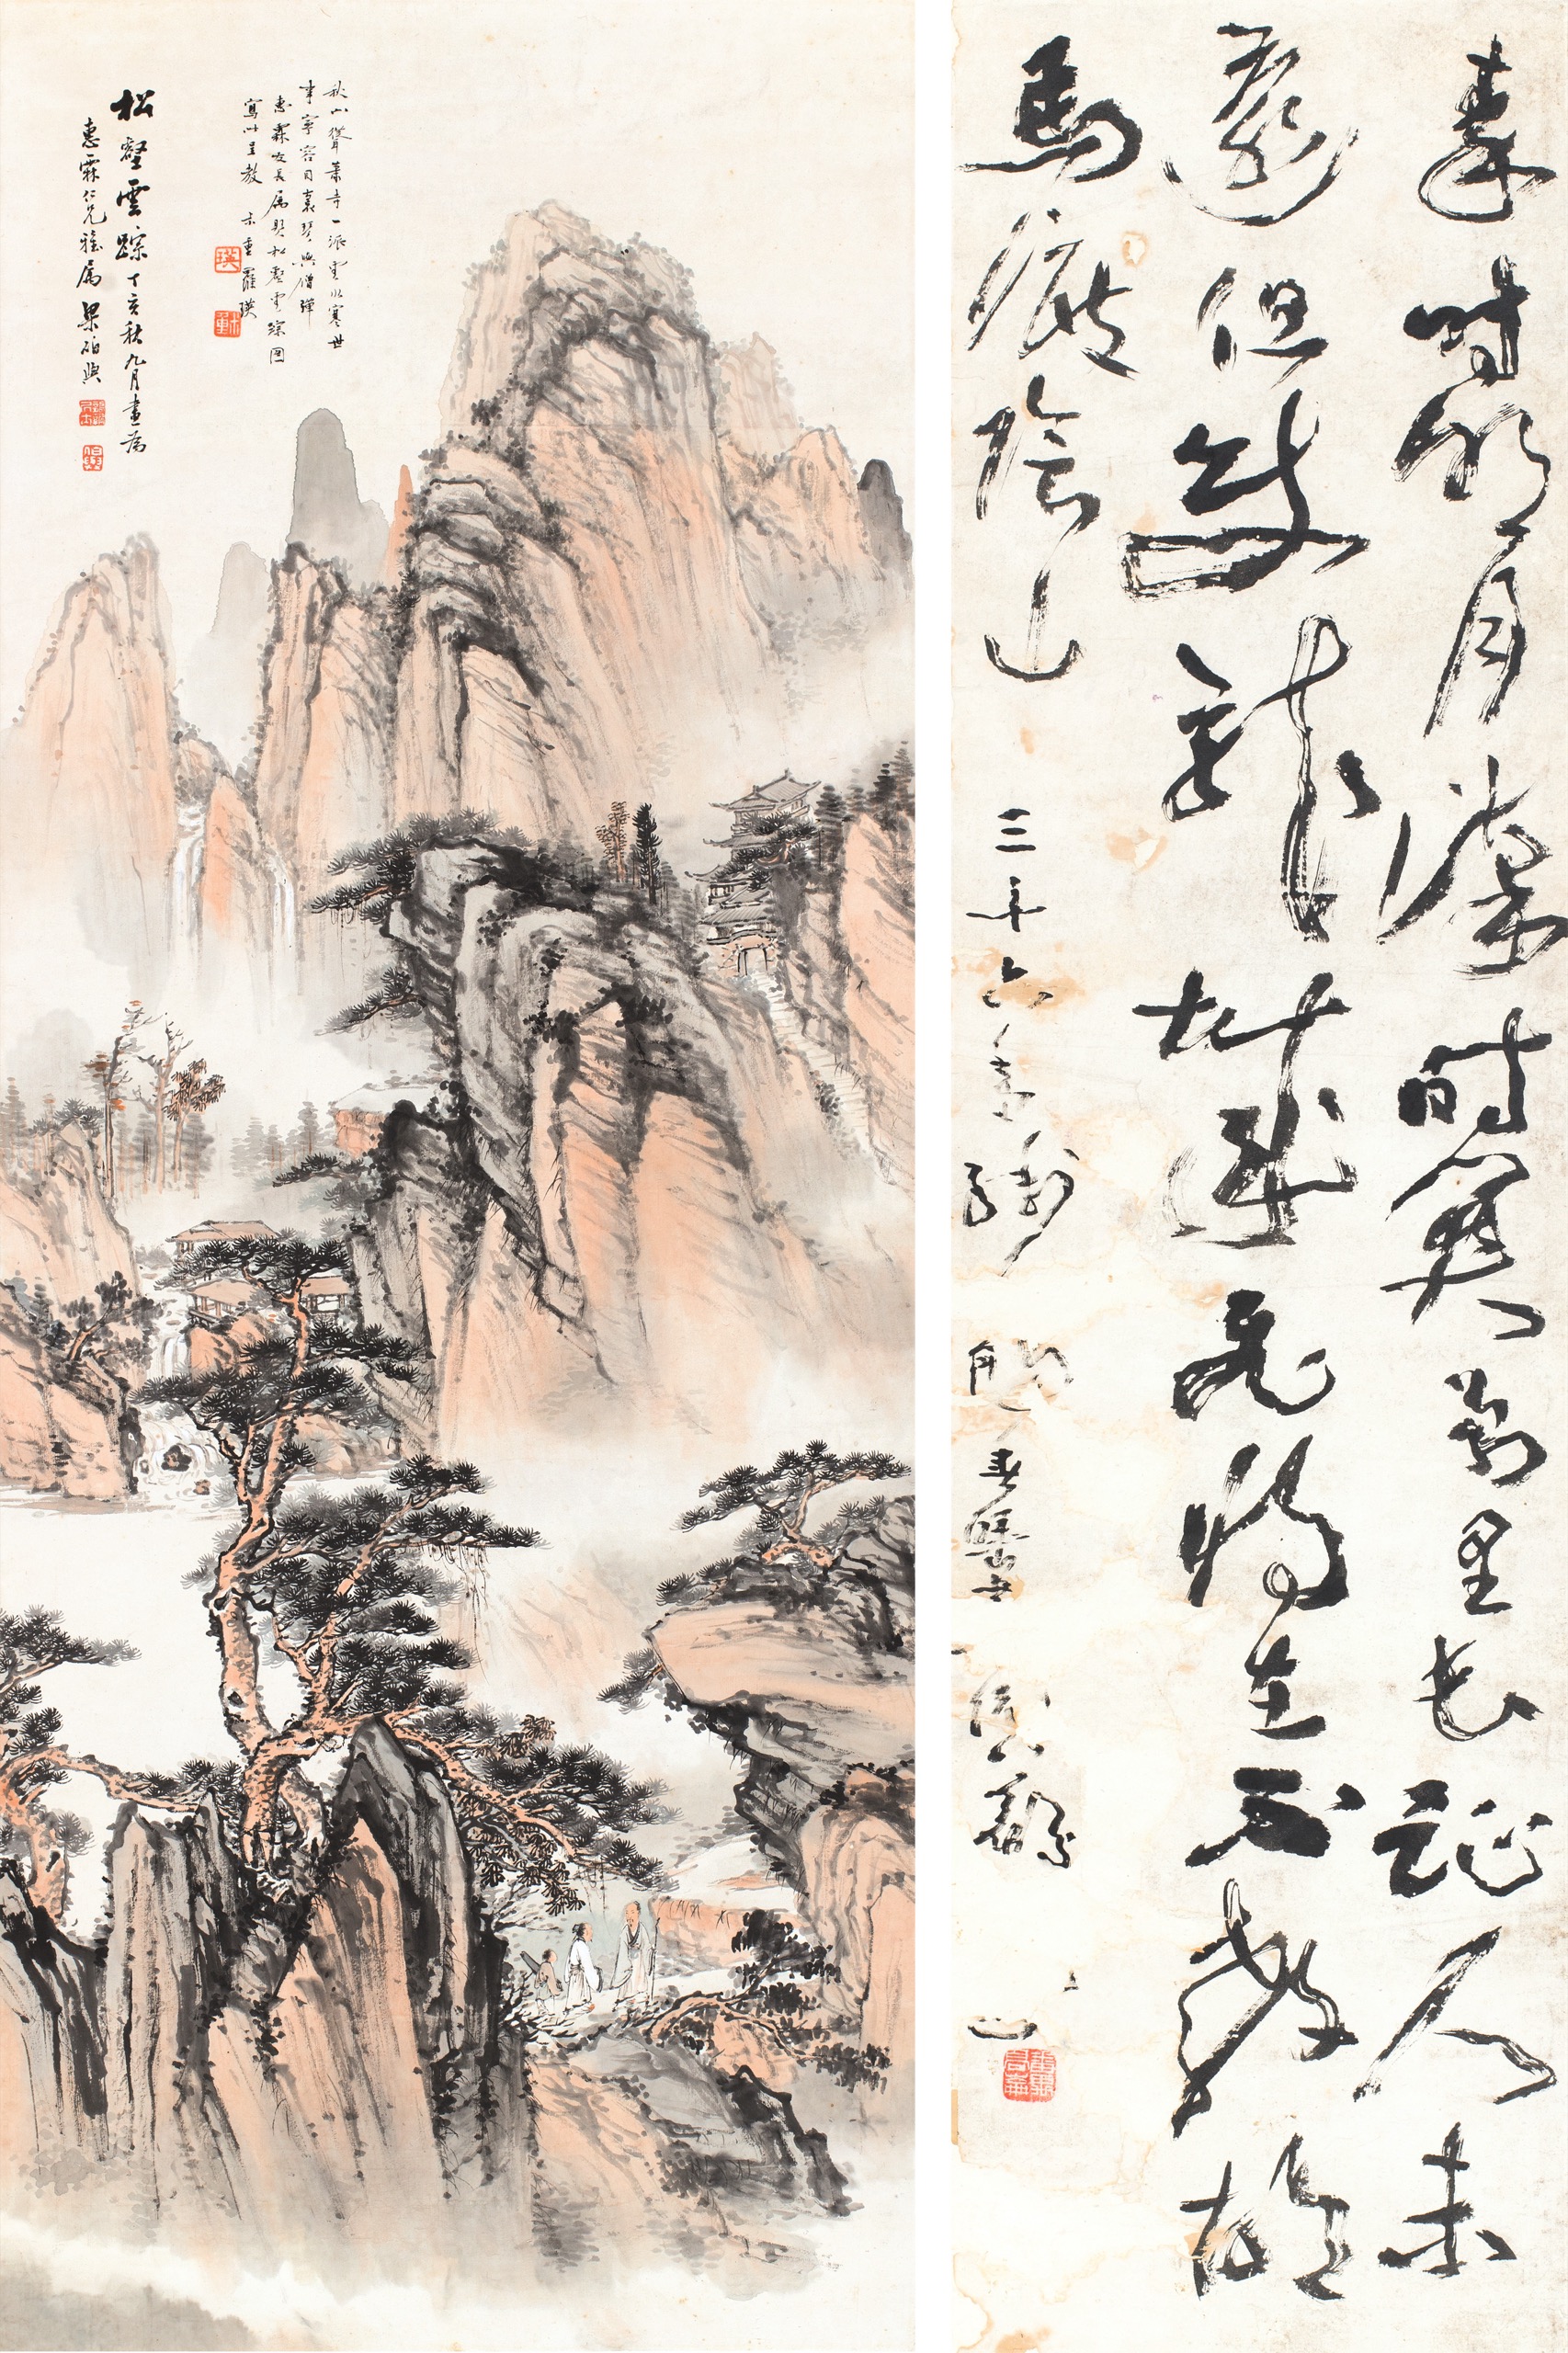 秋山聳蕭寺一派雲水寒世
事寧容日囊琴與僧彈
惠霖友長属題松壑雲蹤图
寫此呈教 尗重羅瑛
松壑雲蹤丁亥秋九月畫為
惠霖仁兄雅属 梁伯譽
秦時明月漢時關萬里長征人未
還但使龍城飛將在不教胡
馬度陰山 三十六年